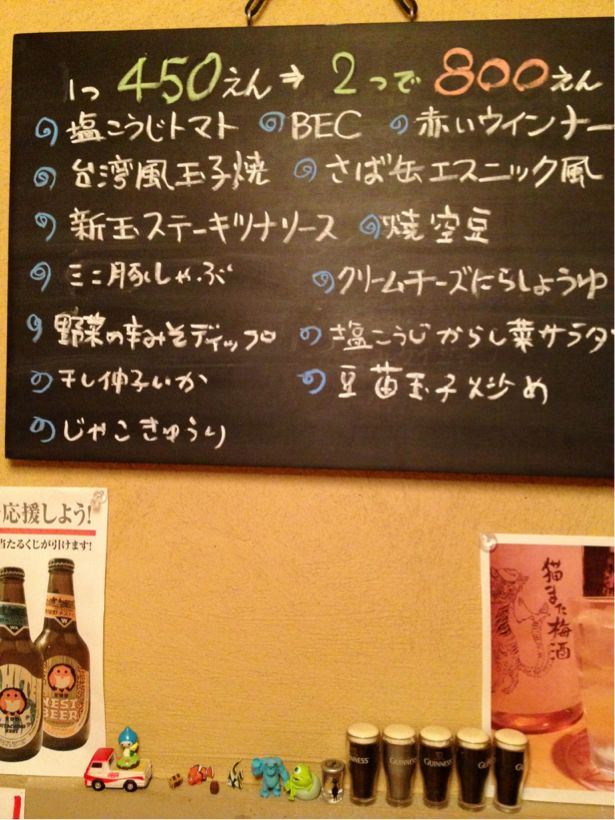 1つ 450えん⇒2つで 800えん
塩こうじトマト BEC 赤いウインナー
台湾風玉子焼 さば缶エスニック風
新玉ステーキツナソース 焼空豆
ミニ豚しゃぶ クリームチーズにらしょうゆ
野菜の辛みそディップ 塩こうじからし菜サラダ
干し仔いか 豆苗玉子炒め
じゃこきゅうり
応援しよう!
当たるくじが引けます!
NEST
BEER
猫また梅酒
GUINNESS
GUINNESS